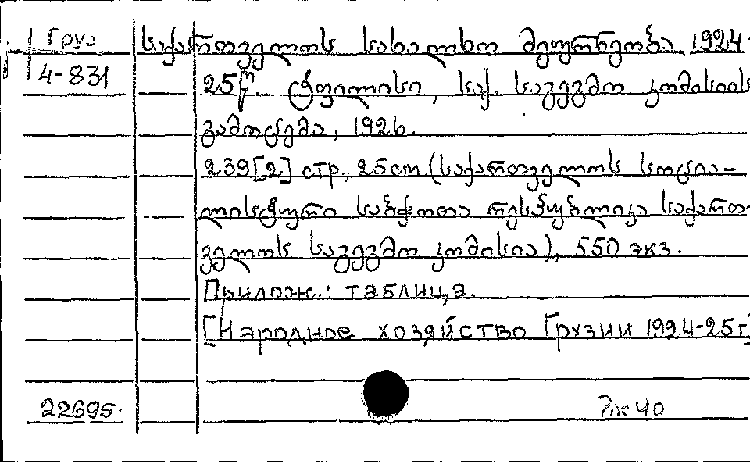 Груз
4-831
საქართველოს სახალხო მეურნეობა 1924-
25წ. ტფილისი, საქ. საგეგმო კომისიის
გამოცემა, 1926.
239[2] стр. 25 cm (საქართველოს სოცია-
ლისტური საბჭოთა რესპუბლიკა საქართ-
ველოს საგეგმო კომისია), 550 экз.
Прилож.: таблица.
[Народное хозяйство Грузии 1924-25г]
22695. 40